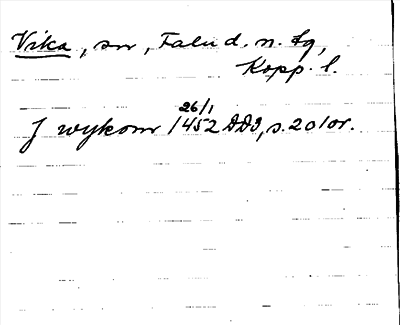 Vika, sn, Falu d. n. tg,
Kopp. l.
J wykom 26/1 1452 DD3, s. 201 or.